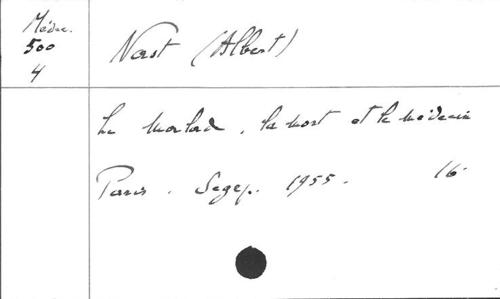 Médec.
500
4
Nast (Albert)
Le malade, la mort et le médecin
Paris. Segep. 1955. 16